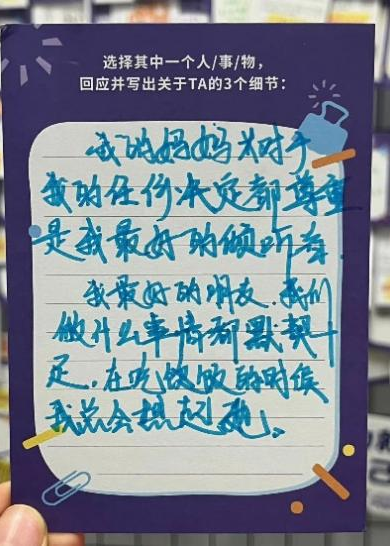 选择其中一个人/事/物,
回应并写出关于TA的3个细节:
我的妈妈 对于
我的任何决定都尊重
是我最好的倾听者.
我最好的朋友.我们
做什么事情都默契十
足.在吃饭的时候
我总会想起她。